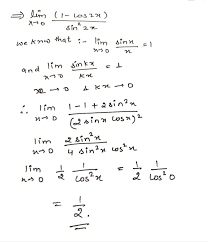 ⇒ lim x→0 (1 - cos2x) / sin²2x
we know that :- lim x→0 sinx / x = 1
and lim x→0 sinkx / kx = 1
x → 0 & kx → 0
∴ lim x→0 1 - 1 + 2sin²x / (2 sinx cosx)²
lim x→0 2 sin²x / 4 sin²x cos²x
lim x→0 1/2 1/cos²x = 1/2 1/cos²0
= 1/2.